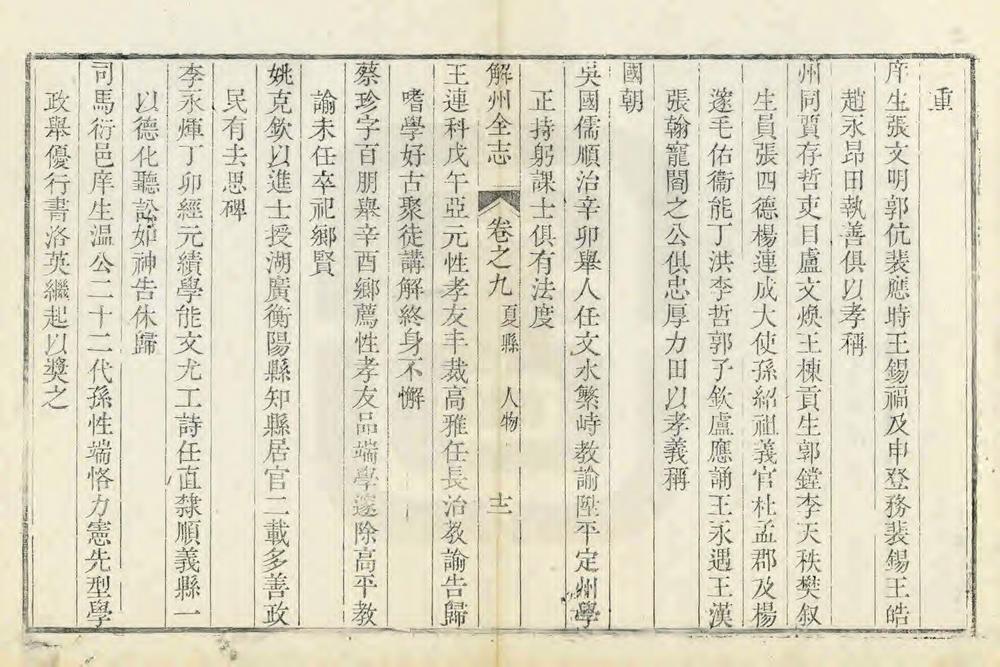 重
庠生張文明郭伉裴應時王錫福及申登務裴錫王皓
趙永昂田執善俱以孝稱
州同賈存哲吏目盧文煥王棟貢生郭鏜李天秩樊叙
生員張四德楊連成大使孫紹祖義官杜孟郡及楊
邃毛佑衞能丁洪李哲郭子欽盧應誦王永遇王漢
張翰寵閻之公俱忠厚力田以孝義稱
國朝
吳國儒順治辛卯舉人任文水繁峙教諭陞平定州學
正持躬課士俱有法度
解州全志 卷之九 夏縣 人物 十二
王連科戊午亞元性孝友丰裁高雅任長治教諭告歸
嗜學好古聚徒講解終身不懈
蔡珍字百朋舉辛酉鄉薦性孝友品端學邃除高平教
諭未任卒祀鄉賢
姚克欽以進士授湖廣衡陽縣知縣居官二載多善政
民有去思碑
李永煇丁卯經元績學能文尤工詩任直隸順義縣一
以德化聽訟如神告休歸
司馬衍邑庠生溫公二十二代孫性端恪力憲先型學
政舉優行書洛英繼起以奬之